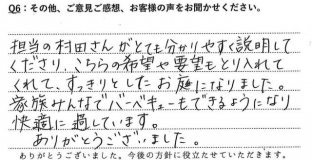 Q6：その他、ご意見ご感想、お客様の声をお聞かせください。
担当の村田さんがとても分かりやすく説明して
くださり、こちらの希望や要望もとり入れて
くれて、すっきりとしたお庭になりました。
家族みんなでバーベキューもできるようになり
快適に過しています。
ありがとうございました。
ありがとうございました。今後の方針に役立たせていただきます。